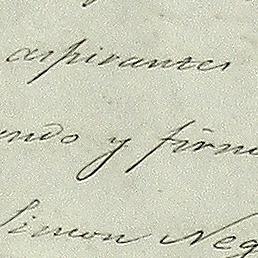 aspirantes
ndo y firm
Simon Neg